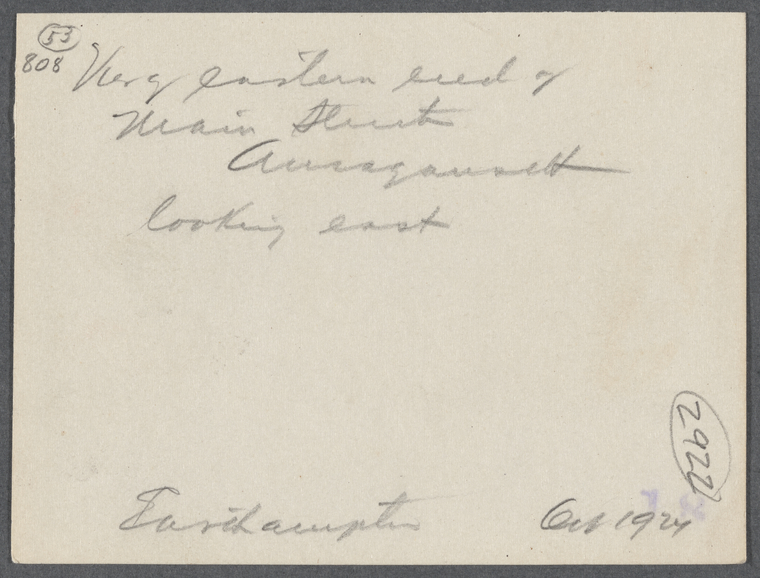 53
808
Very eastern end of
Main Street
Amagansett
looking east
2922
Easthampton Oct 1924